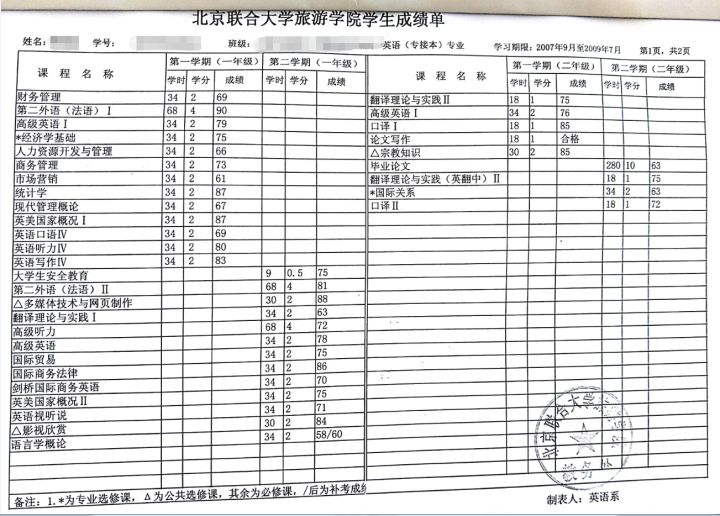 北京联合大学旅游学院学生成绩单
姓名： 学号： 班级： 英语（专接本）专业 学习期限：2007年9月至2009年7月 第1页，共2页
课 程 名 称 第一学期（一年级） 第二学期（一年级）
学时 学分 成绩 学时 学分 成绩
财务管理 34 2 69
第二外语（法语）Ⅰ 68 4 90
高级英语Ⅰ 34 2 79
*经济学基础 34 2 75
人力资源开发与管理 34 2 66
商务管理 34 2 73
市场营销 34 2 61
统计学 34 2 87
现代管理概论 34 2 67
英美国家概况Ⅰ 34 2 87
英语口语Ⅳ 34 2 69
英语听力Ⅳ 34 2 80
英语写作Ⅳ 34 2 83
大学生安全教育 9 0.5 75
第二外语（法语）Ⅱ 68 4 81
△多媒体技术与网页制作 30 2 88
翻译理论与实践Ⅰ 34 2 63
高级听力 68 4 72
高级英语 34 2 78
国际贸易 34 2 75
国际商务法律 34 2 86
剑桥国际商务英语 34 2 70
英美国家概况Ⅱ 34 2 75
英语视听说 34 2 71
△影视欣赏 30 2 84
语言学概论 34 2 58/60
课 程 名 称 第一学期（二年级） 第二学期（二年级）
学时 学分 成绩 学时 学分 成绩
翻译理论与实践Ⅱ 18 1 75
高级英语Ⅰ 34 2 76
口译Ⅰ 18 1 85
论文写作 18 1 合格
△宗教知识 30 2 85
毕业论文 280 10 63
翻译理论与实践（英翻中）Ⅱ 18 1 75
*国际关系 34 2 63
口译Ⅱ 18 1 72
北京联合大学
教务
备注：1.*为专业选修课，Δ为公共选修课，其余为必修课，/后为补考成绩
制表人：英语系